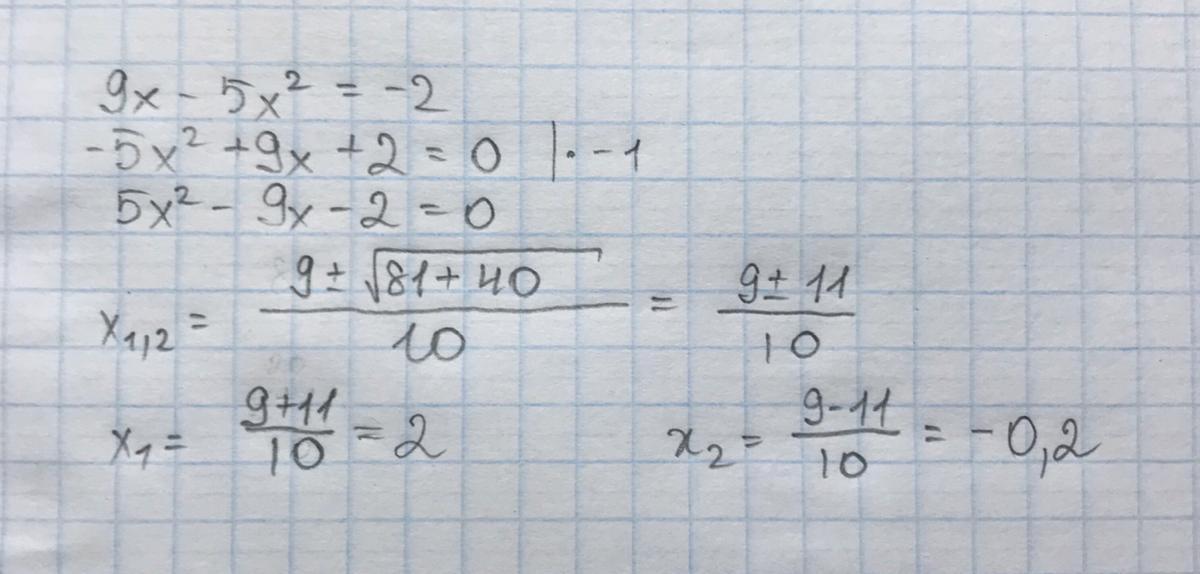 9x - 5x² = -2
-5x² + 9x + 2 = 0 | · -1
5x² - 9x - 2 = 0
x₁,₂ = (9 ± √(81 + 40))/10 = (9 ± 11)/10
x₁ = (9+11)/10 = 2    x₂ = (9-11)/10 = -0,2